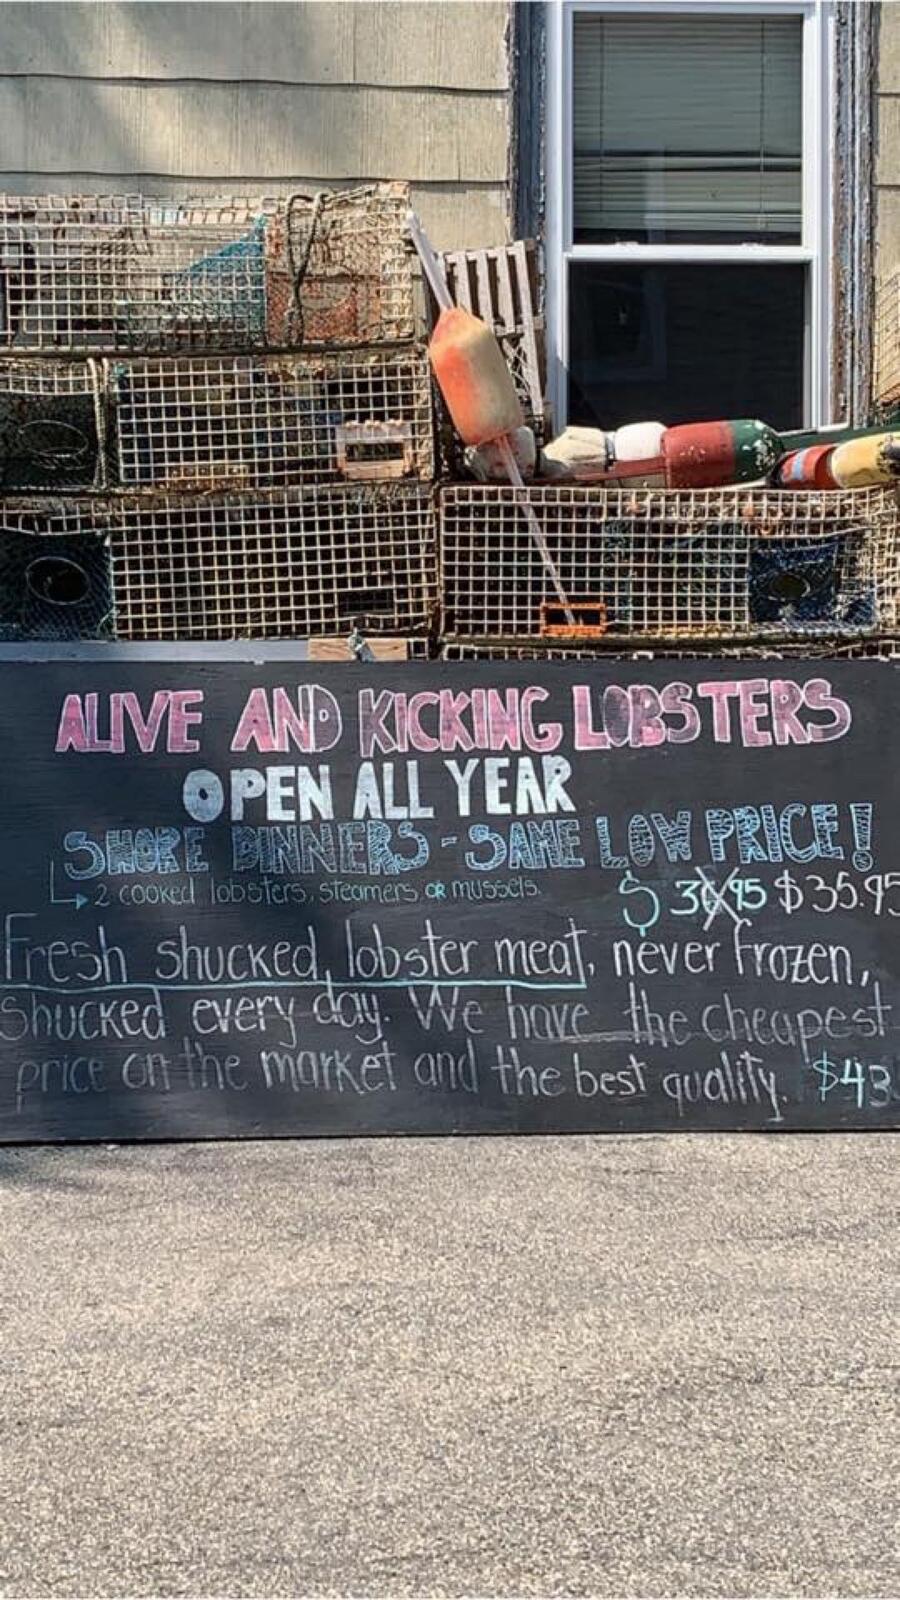 ALIVE AND KICKING LOBSTERS
OPEN ALL YEAR
SHORE DINNERS - SAME LOW PRICE!
2 cooked lobsters, steamers or mussels. $ 36.95 $35.95
Fresh shucked, lobster meat, never frozen,
Shucked every day. We have the cheapest
price on the market and the best quality. $43